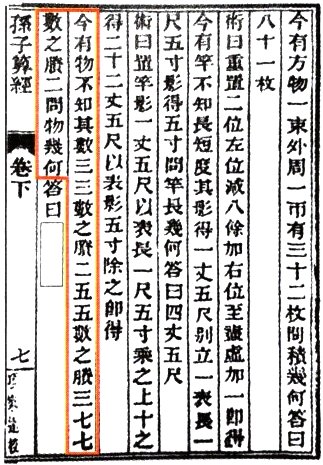 今有方物一束外周一帀有三十二枚問積幾何答曰
八十一枚
術曰重置二位左位減八餘加右位至盡虛加一卽得
今有竿不知長短度其影得一丈五尺別立一表長一
尺五寸影得五寸問竿長幾何答曰四丈五尺
術曰置竿影一丈五尺以表長一尺五寸乘之上十之
得二十二丈五尺以表影五寸除之卽得
今有物不知其數三三數之賸二五五數之賸三七七
數之賸二問物幾何答曰
孫子算經
卷下
七